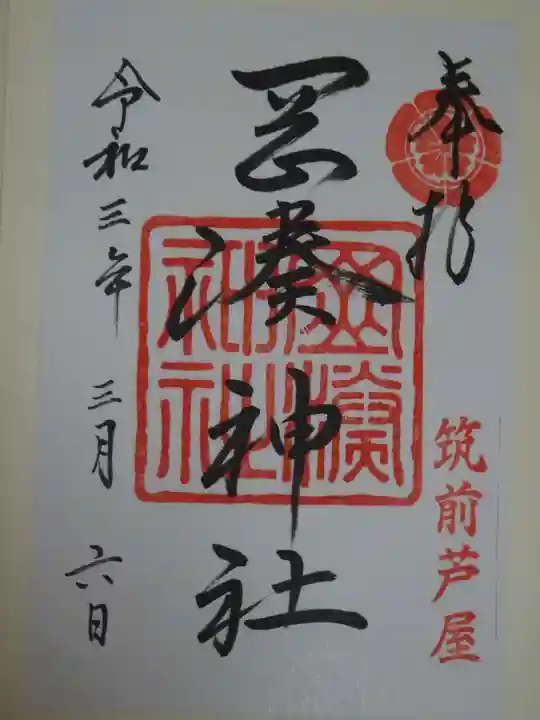 奉拝
筑前芦屋
岡湊神社
令和三年三月六日